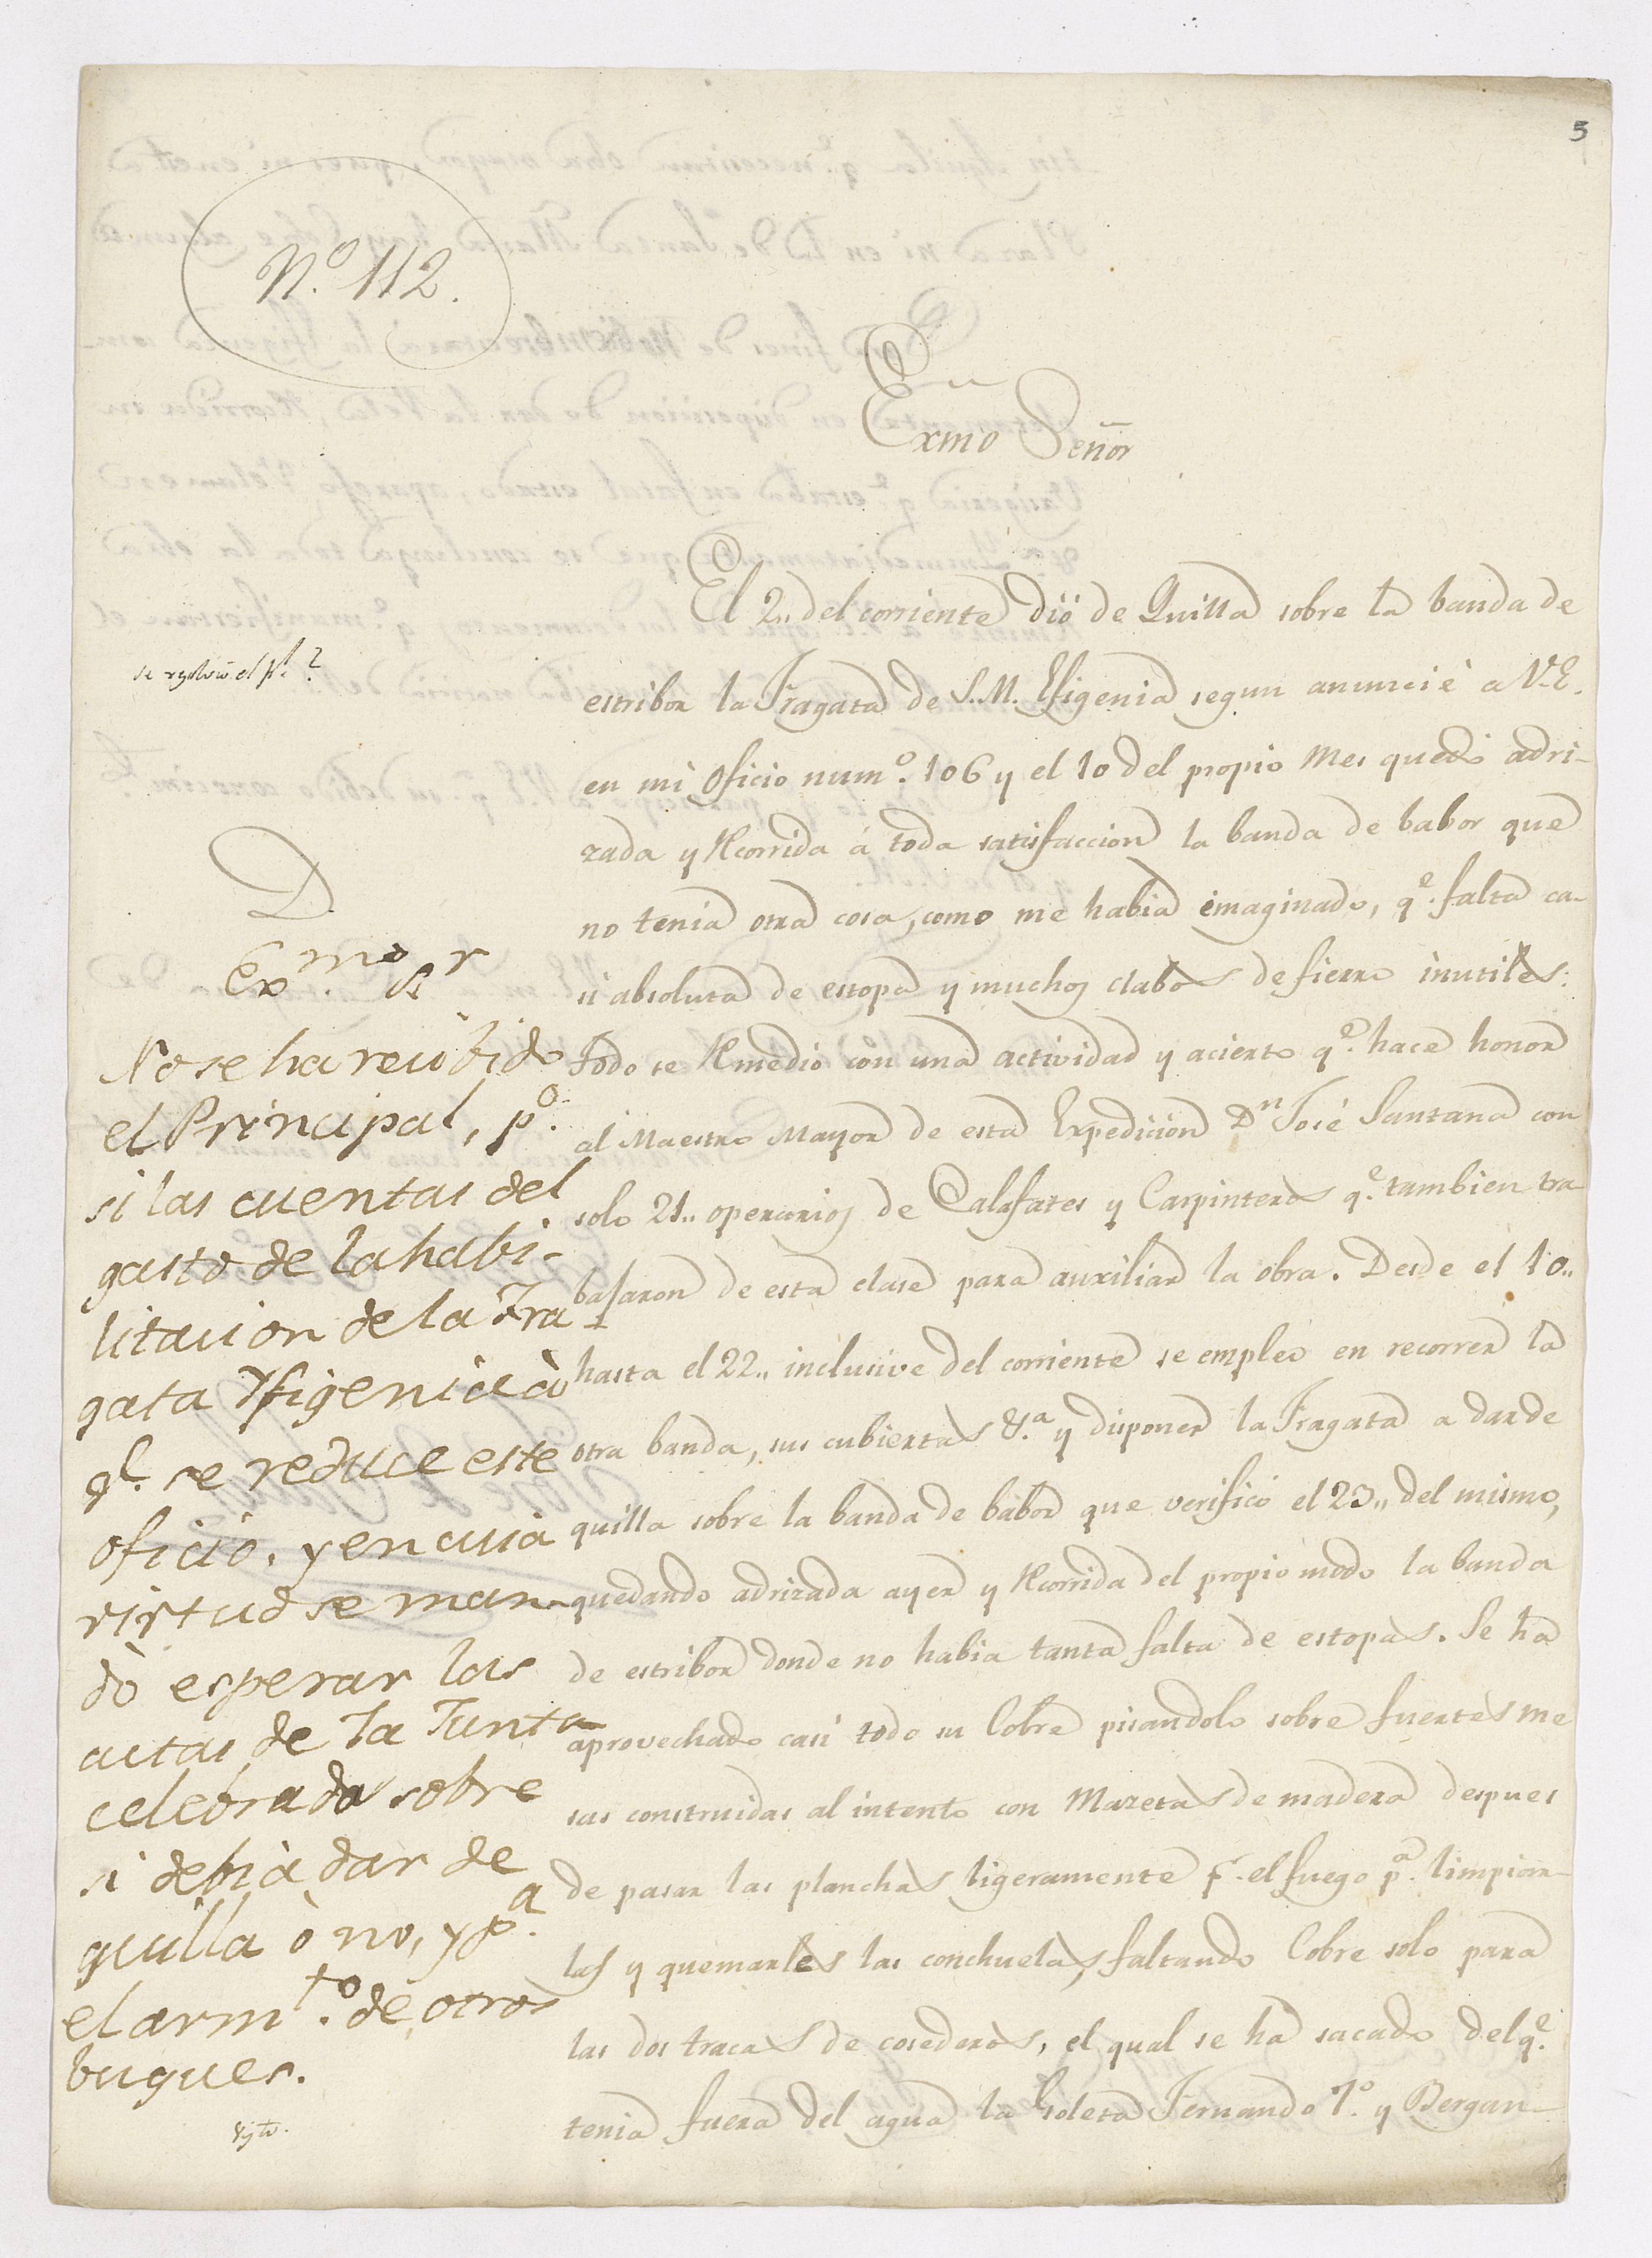 5
N.º 112.
Exmo Señor
El 2,, del corriente dió de Quilla sobre la banda de
estribor la Fragata de S.M. Efigenia segun anuncié a V.E.
en mi Oficio num.º 106 y el 10 del propio Mes quedó adri-
zada y Rcorrida á toda satisfaccion la banda de babor que
no tenia otra cosa, como me habia imaginado, q.e falta ca-
si absoluta de estopa y muchos clabos de fierro inutiles:
Todo se Rmedió con una actividad y acierto q.e hace honor
al Maestro Mayor de esta Expedicion Dn José Santana con
solo 21,, operarios de Calafates y Carpinteros q.e tambien tra-
bajaron de esta clase para auxiliar la obra. Desde el 10,,
hasta el 22,, inclusive del corriente se empleó en recorrer la
otra banda, sus cubiertas &.a y disponer la Fragata a dar de
quilla sobre la banda de babor que verificó el 23,, del mismo,
quedando adrizada ayer y Rcorrida del propio modo la banda
de estribor donde no habia tanta falta de estopas. Se ha
aprovechado casi todo su Cobre pisandolo sobre fuertes me
sas construidas al intento con Mazetas de madera despues
de pasar las planchas ligeramente p.r el fuego p.a limpiar-
las y quemarles las conchuelas, faltando Cobre solo para
las dos tracas de cosederos, el qual se ha sacado del q.e
tenia fuera del agua la Goleta Fernando 7.º y Bergan-
se resolvio el
D.
Exmo. Sr
No se ha recibido
el Principal, p.o
si las cuentas del
gasto de la habi-
litacion de la Fra-
gata Ifigenia à
q.e se reduce este
oficio. y en cuia
virtud se man-
dò esperar las
actas de la Junta
celebrada sobre
si debia dar de
quilla ò no, y p.a
el arm.to de otros
buques.